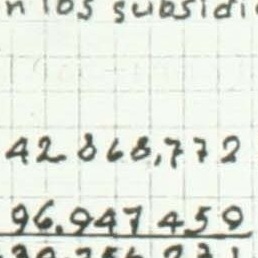 n los subsidi
42 808,772
96.947 459